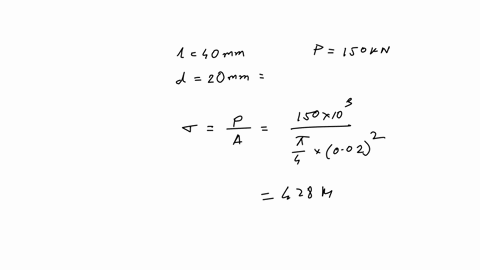 l = 40 mm P = 150 kN
d = 20 mm =
σ = P/A = 150 × 10^3 / (π/4 × (0.02)^2)
= 428 M